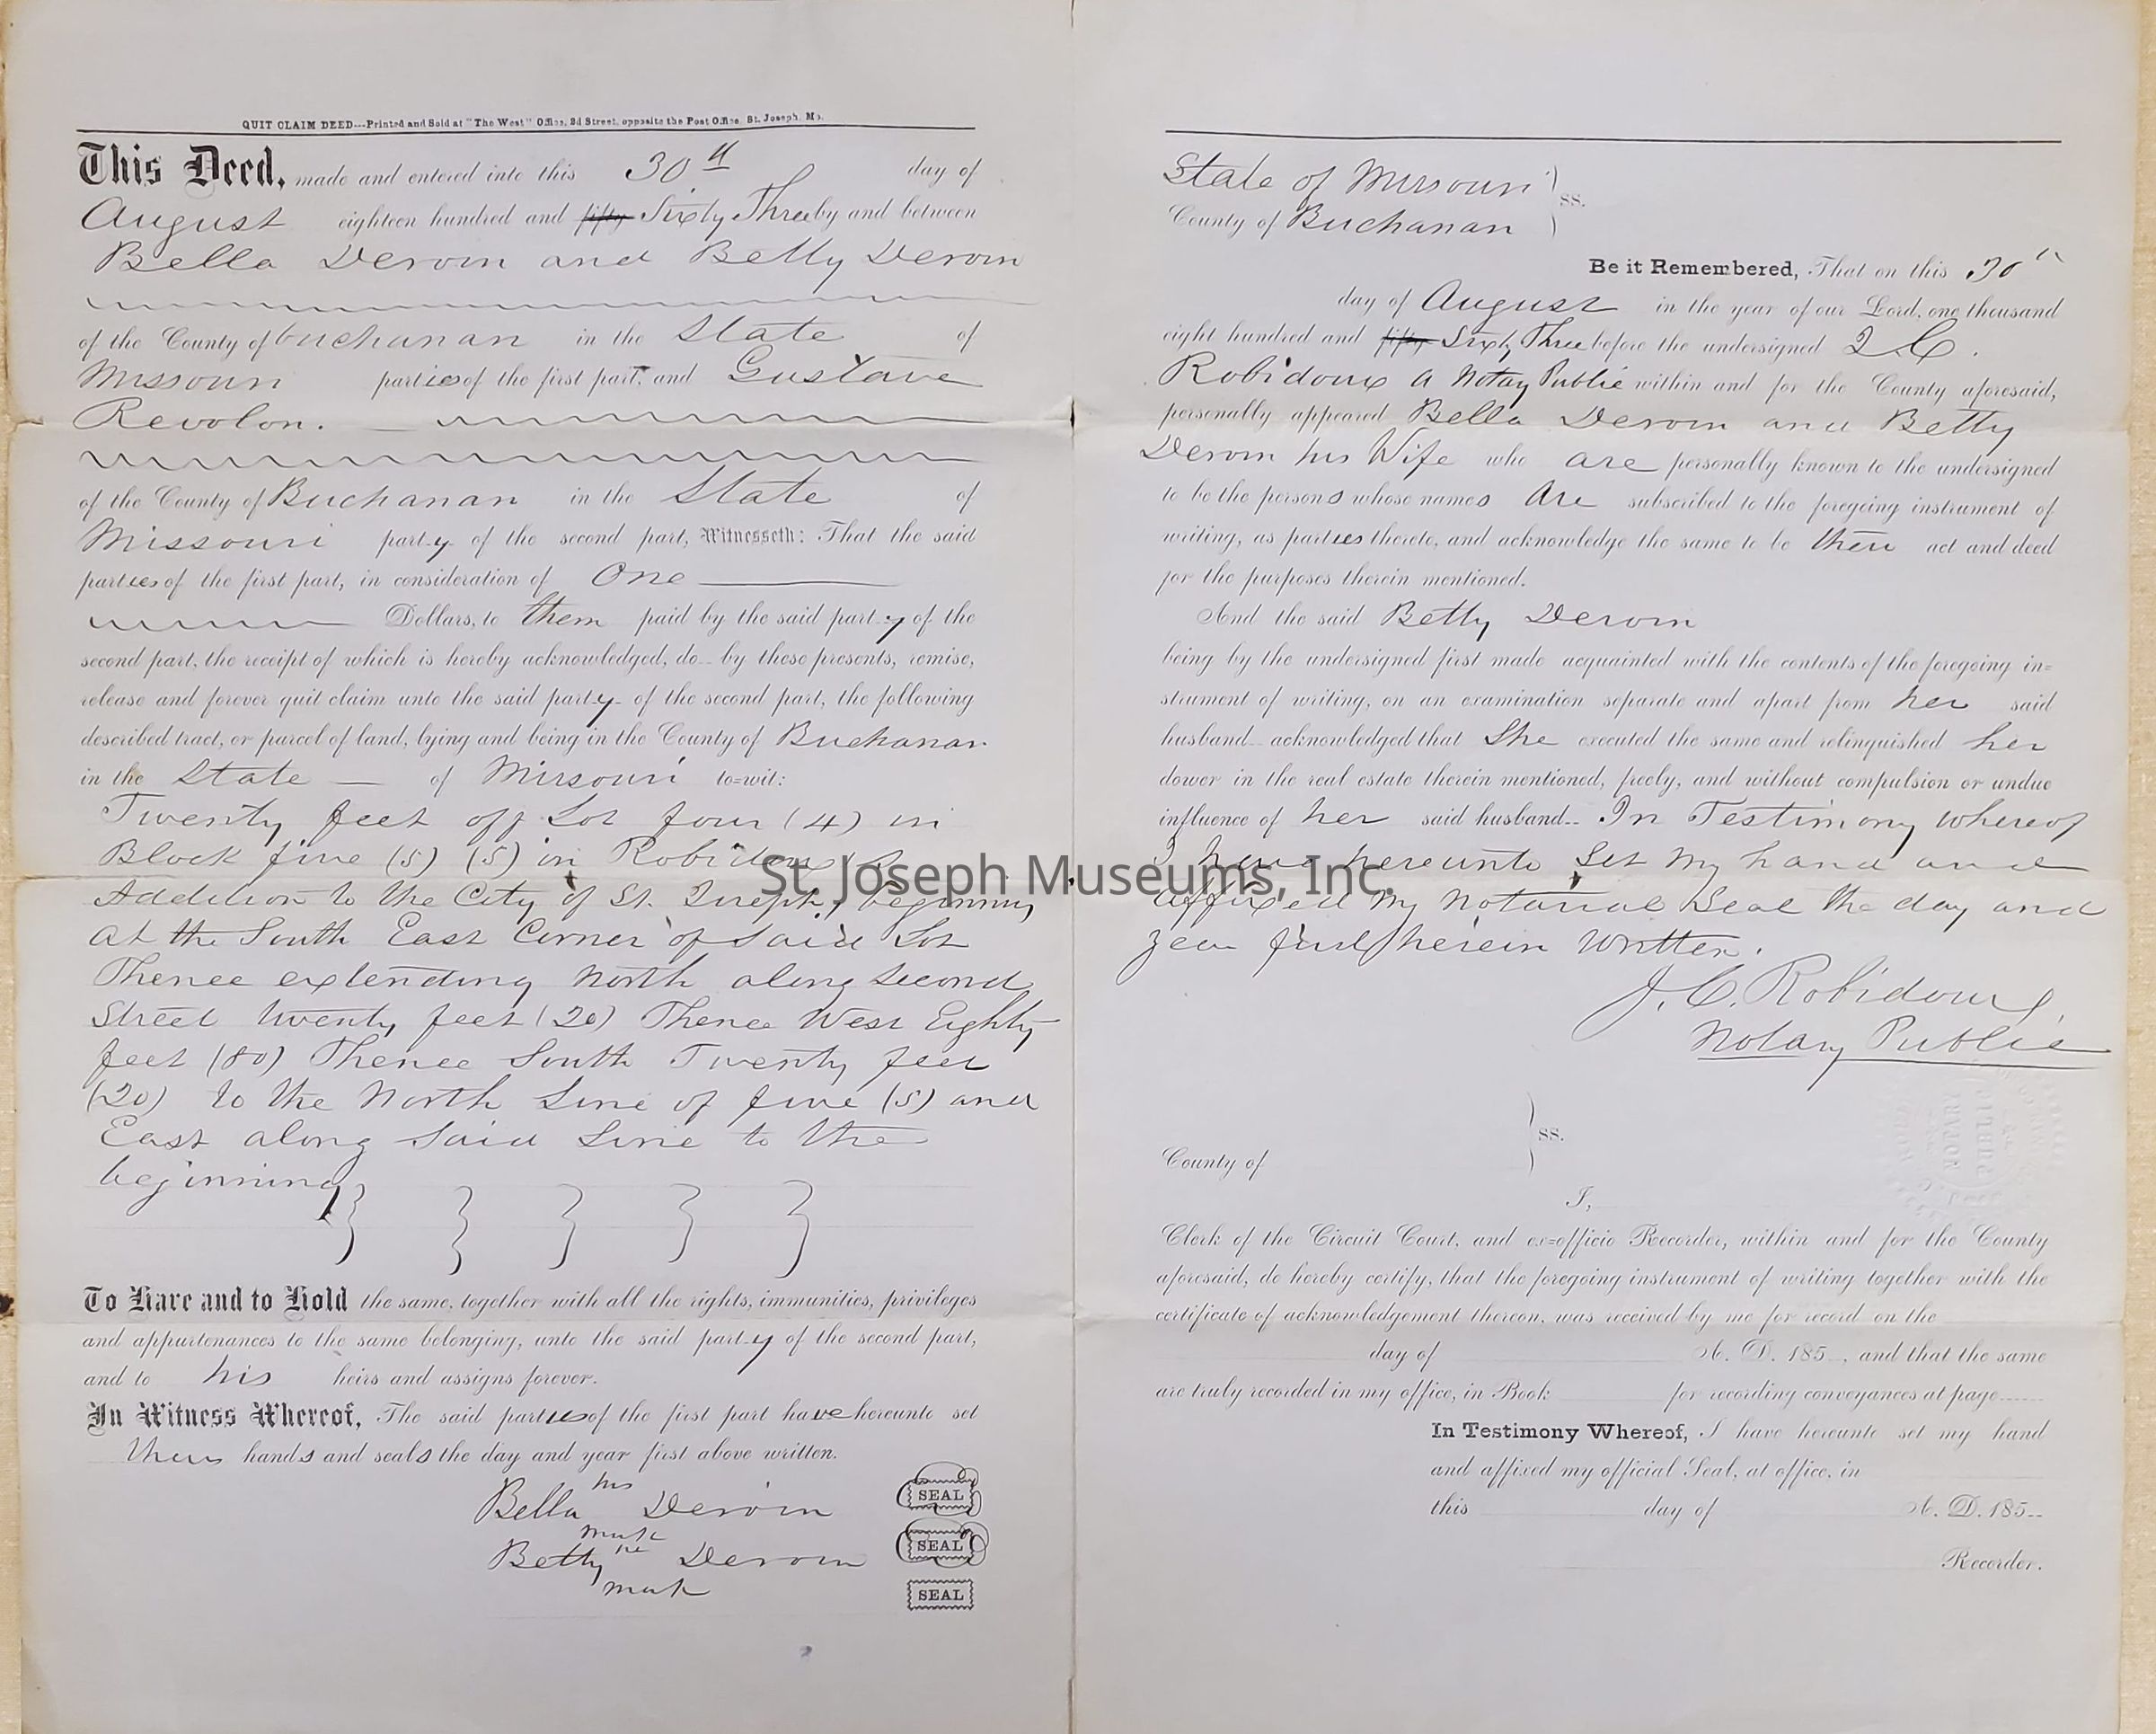 QUIT CLAIM DEED---Printed and Sold at "The West" Office, 2d Street, opposite the Post Office, St. Joseph, Mo.
This Deed, made and entered into this 30th day of
August eighteen hundred and fifty Sixty Three by and between
Bella Deroin and Betty Deroin
of the County of buchanan in the State of
Missouri parties of the first part, and Gustave
Revolon.
of the County of Buchanan in the State of
Missouri party of the second part, Witnesseth: That the said
parties of the first part, in consideration of One
Dollars, to them paid by the said party of the
second part, the receipt of which is hereby acknowledged, do by these presents, remise,
release and forever quit claim unto the said party of the second part, the following
described tract, or parcel of land, lying and being in the County of Buchanan
in the State of Missouri to=wit:
Twenty feet off Lot four (4) in
Block five (5) (5) in Robidoux
Addition to the City of St. Joseph, beginning
at the South East Corner of Said Lot
Thence extending North along Second
Street twenty feet (20) Thence West Eighty
feet (80) Thence South Twenty feet
(20) to the North Line of five (5) and
East along Said Line to the
beginning
To Have and to Hold the same, together with all the rights, immunities, privileges
and appurtenances to the same belonging, unto the said party of the second part,
and to his heirs and assigns forever.
In Witness Whereof, The said parties of the first part have hereunto set
their hands and seals the day and year first above written.
his
Bella Deroin SEAL
mark
Betty Deroin SEAL
mark
SEAL
State of Missouri
ss.
County of Buchanan
Be it Remembered, That on this 30th
day of August in the year of our Lord, one thousand
eight hundred and fifty Sixty Three before the undersigned J C.
Robidoux a Notary Public within and for the County aforesaid,
personally appeared Bella Deroin and Betty
Deroin his Wife who are personally known to the undersigned
to be the persons whose names are subscribed to the foregoing instrument of
writing, as parties thereto, and acknowledge the same to be their act and deed
for the purposes therein mentioned.
And the said Betty Deroin
being by the undersigned first made acquainted with the contents of the foregoing in=
strument of writing, on an examination separate and apart from her said
husband acknowledged that She executed the same and relinquished her
dower in the real estate therein mentioned, freely, and without compulsion or undue
influence of her said husband In Testimony whereof
I have hereunto Set my hand and
affixed my notarial Seal the day and
year first herein written.
J. C. Robidoux
Notary Public
ss.
County of
I,
Clerk of the Circuit Court, and ex=officio Recorder, within and for the County
aforesaid, do hereby certify, that the foregoing instrument of writing together with the
certificate of acknowledgement thereon, was received by me for record on the
day of A. D. 185 , and that the same
are truly recorded in my office, in Book for recording conveyances at page
In Testimony Whereof, I have hereunto set my hand
and affixed my official Seal, at office, in
this day of A. D. 185
Recorder.
St. Joseph Museums, Inc.